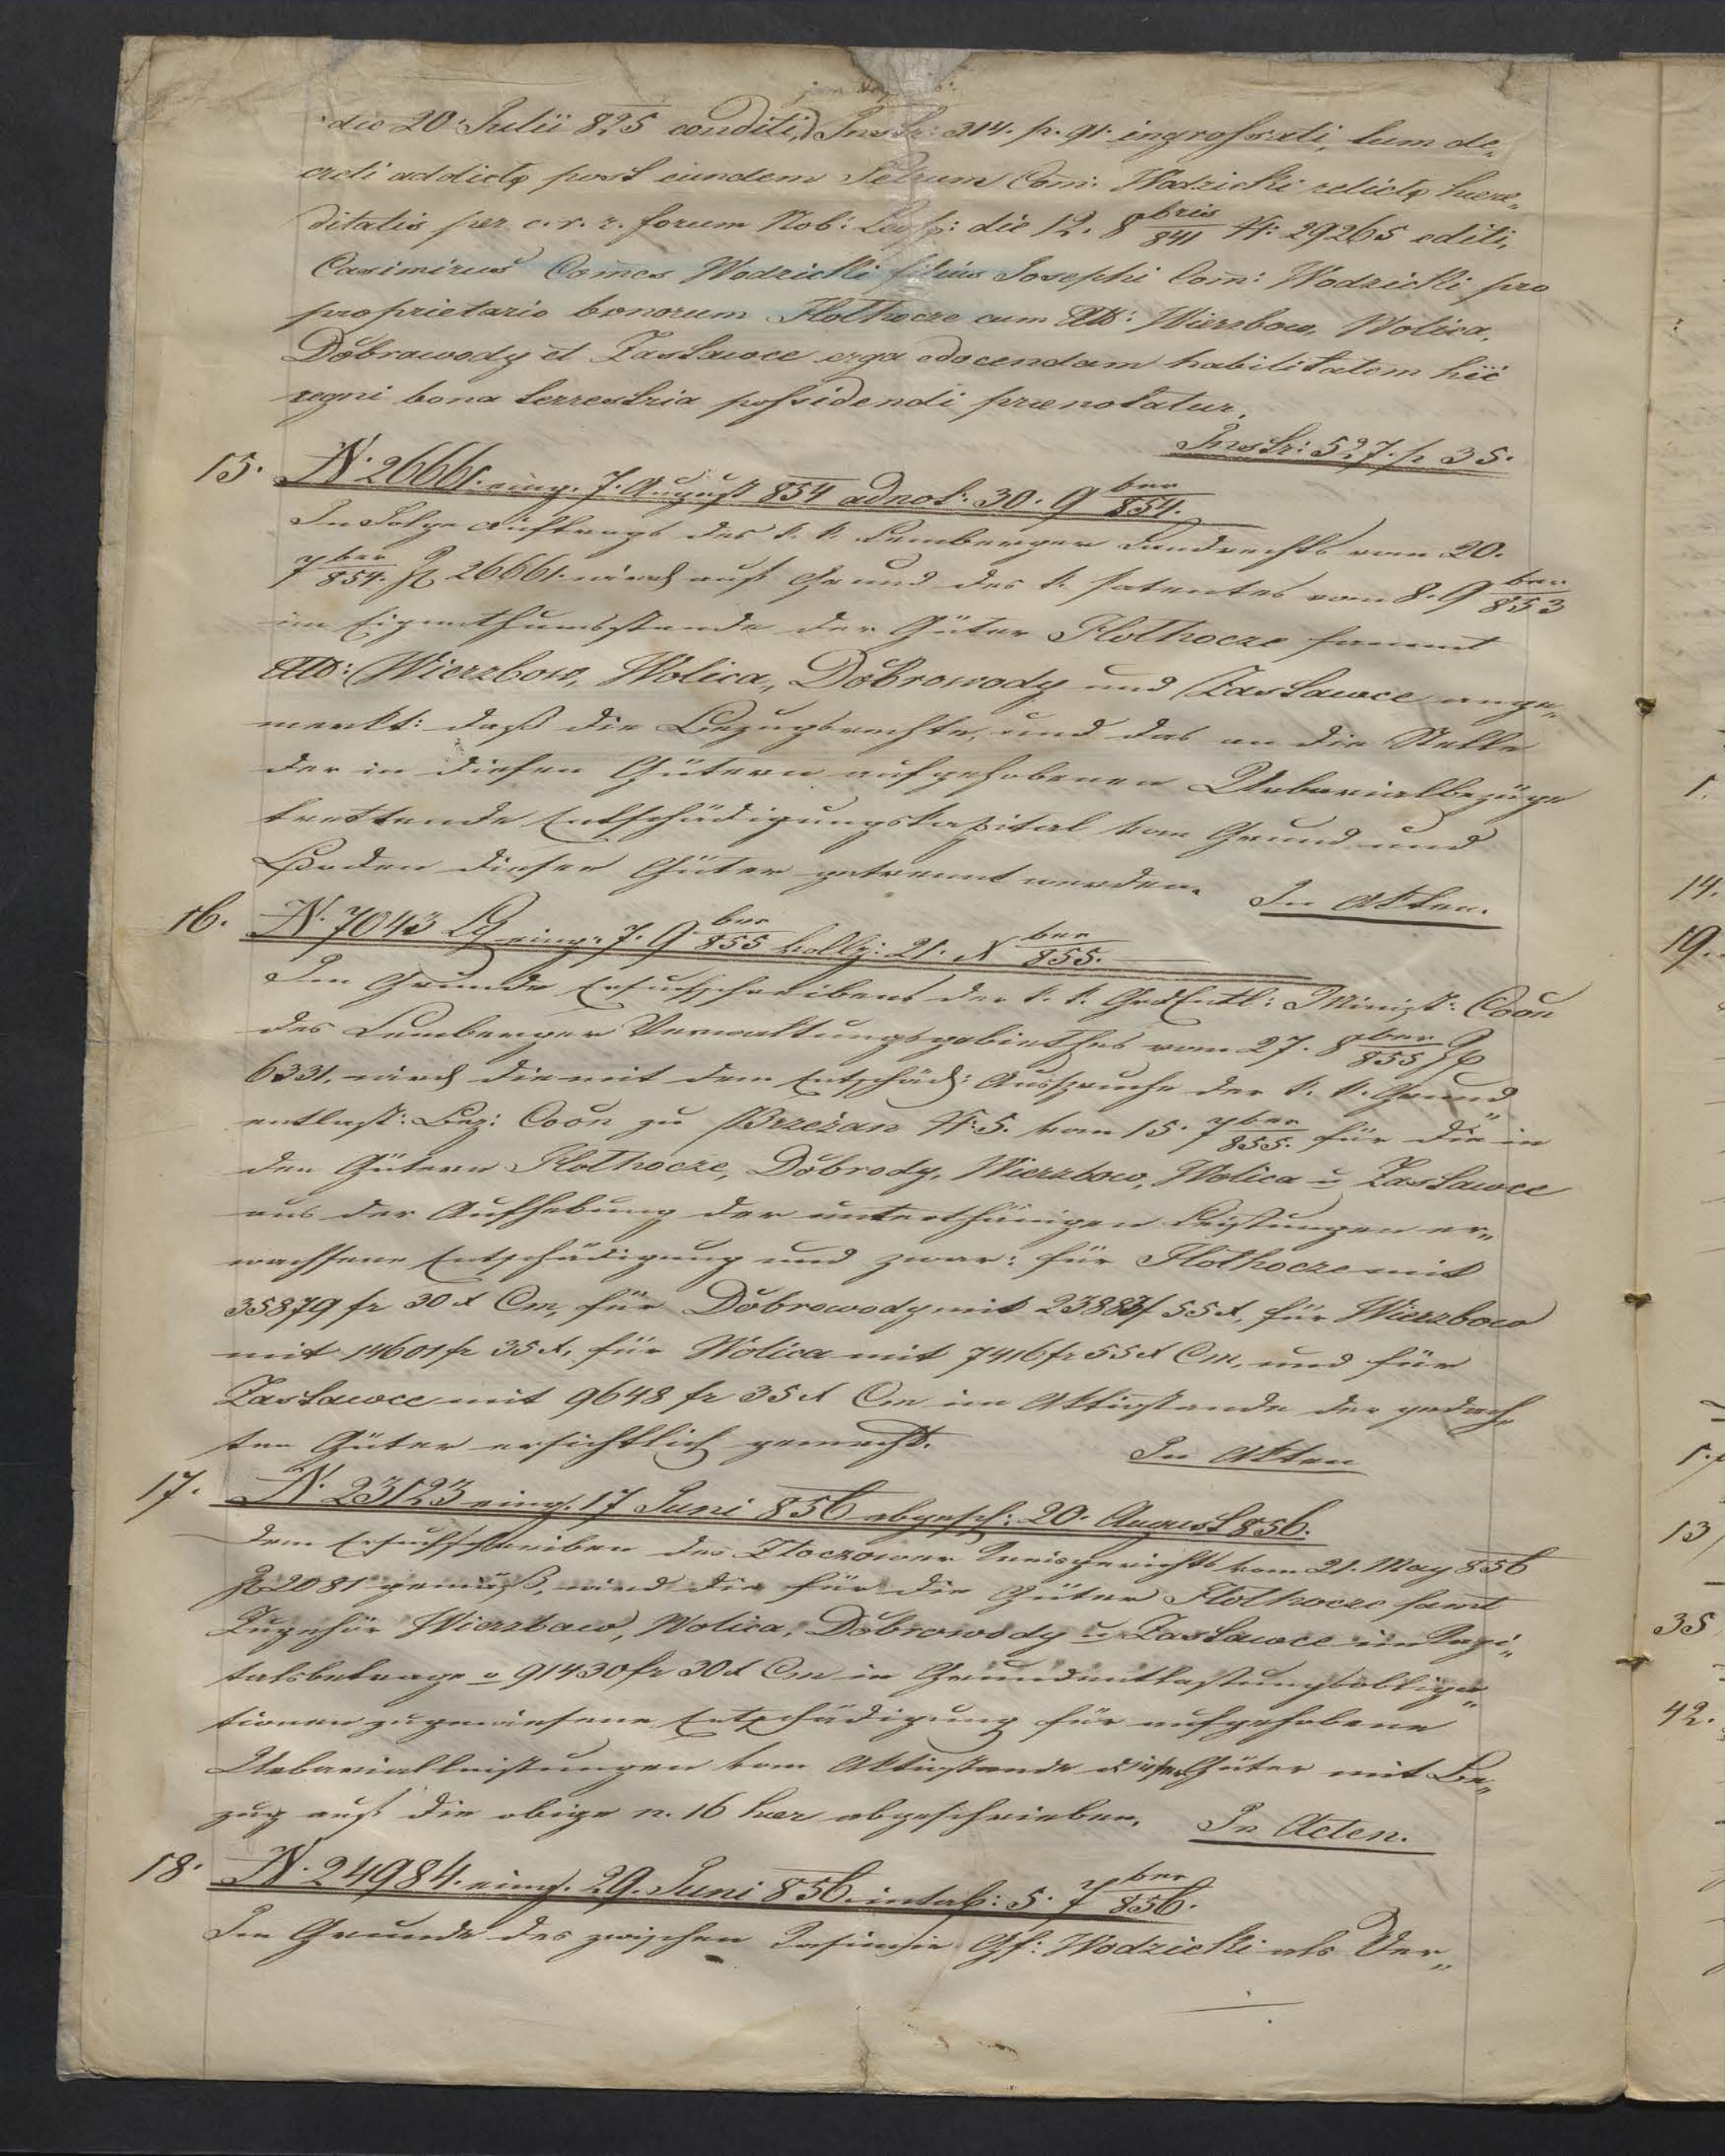 die 20. Julii 825 conditi, Instr: 314. p. 91. ingrossati, tum de„
creti addictę post eundem Petrum Com: Wodzicki relictę haere„
ditatis per c. r. r. forum Nob: Leop: die 12. 8bris 841 N: 29265 editi,
Casimirus Comes Wodzicki filius Josephi Com: Wodzicki pro
proprietario bonorum Hołhocze cum Att: Wierzbow, Wolica,
Dobrowody et Zastawce erga edocendam habilitatem hic
regni bona terrestria possidendi praenotatur.
Instr: 527. p 35.
15. N. 26661. eing. 7. August 854 adnot: 30. 9ber 854.
In Folge Auftrags des k. k. Lemberger Landrechts vom 20.
7ber 854. Z 26661. wird auf Grund des k. Patentes vom 8. 9ber 853
im Eigenthumsstande der Güter Hołhocze sammt
Att: Wierzbow, Wolica, Dobrowody und Zastawce ange„
merkt: daß die Bezugsrechte, und das an die Stelle
der in diesen Gütern aufgehobenen Urbarialbezüge
trettende Entschädigungskapital vom Grund und
Boden dieser Güter getrennt werden.
In Akten.
16. N. 7043 eing. 7. 9ber 855 kollg: 21. Xber 855.
Im Grunde Ersuchschreibens der k. k. GrdEntl: Minist: Coon
des Lemberger Verwaltungsgebiethes vom 27. 8ber 855 Z
6331, wird die mit dem Entschäd: Ausspruche der k. k. Grund„
entlast: Bez: Coon zu Brzeżan N: 5. vom 15. 7ber 855. für die in
den Gütern Hołhocze, Dobrody, Wierzbow, Wolica u Zastawce
aus der Aufhebung der unterthänigen Leistungen er„
wachsene Entschädigung und zwar: für Hołhocze mit
35879 fr 30 x Cm, für Dobrowody mit 23883f 55x, für Wierzbow
mit 14601 fr 35 x, für Wolica mit 7416 fr 55 x Cm, und für
Zastawce mit 9648 fr 35 x Cm im Aktivstande der gedach„
ten Güter ersichtlich gemacht.
In Akten
17. N. 23123 eing. 17 Juni 856 abgesch: 20. August 856.
Dem Ersuchschreiben des Złoczower Kreisgerichts vom 21. May 856
Z 2081 gemäß, wird die für die Güter Hołhocze samt
Zugehör Wierzbow, Wolica, Dobrowody u Zastawce im Kapi„
talsbetrage v 91430 fr 30 x Cm in Grundentlastungsobliga„
tionen zugewiesene Entschädigung für aufgehobene
Urbarialleistungen vom Aktivstande dieser Güter mit Be„
zug auf die obige n. 16 haer abgeschrieben.
In Acten.
18. N. 24984. eing. 29. Juni 856. intab: 5. 7ber 856.
Im Grunde des zwischen Kasimir Gf: Wodzicki als Ver„
1.
14.
19.
13
35
42.